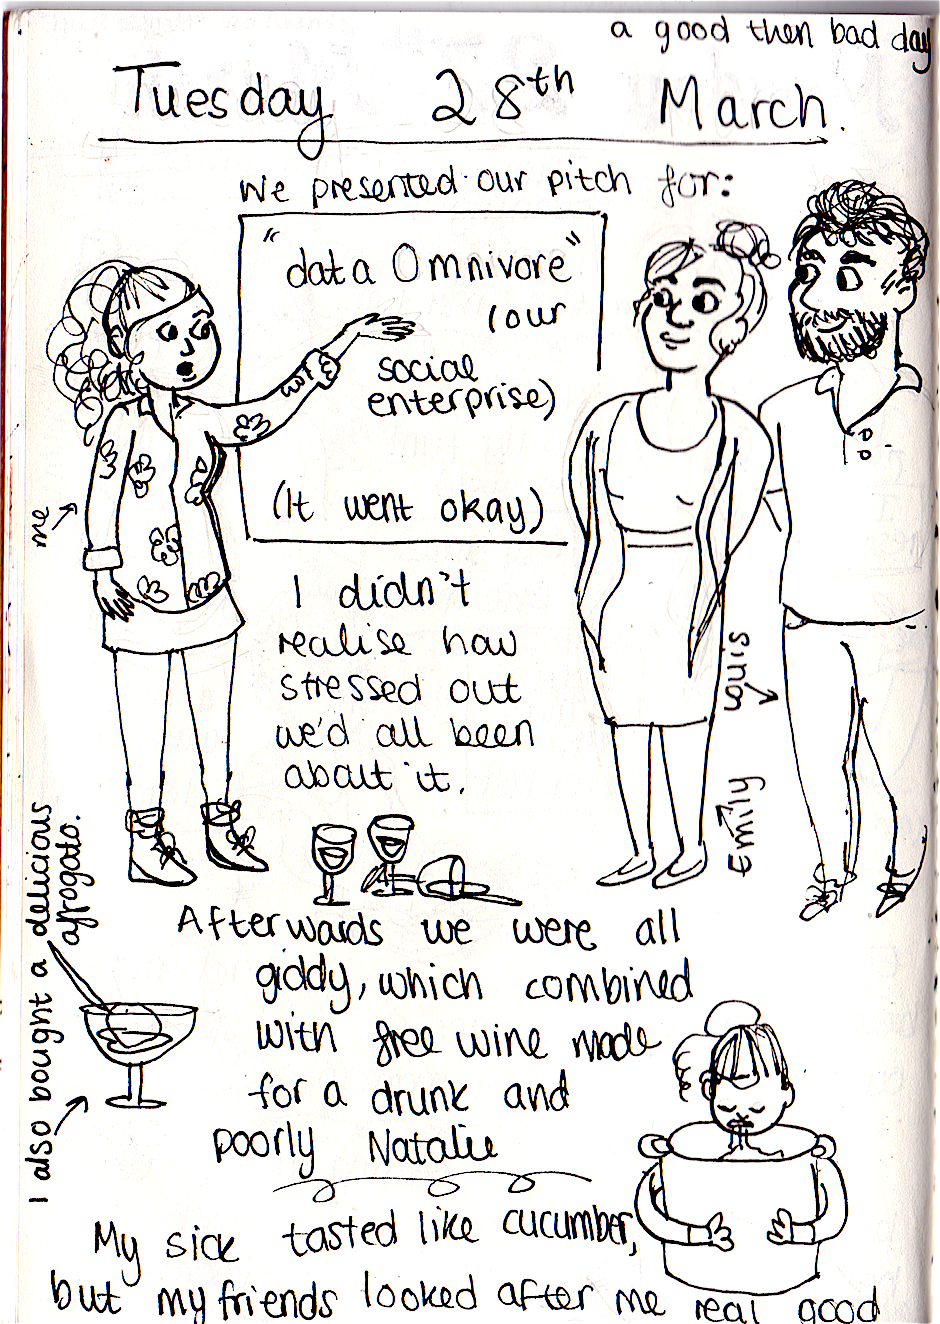 a good then bad day
Tuesday 28th March.
We presented our pitch for:
"data Omnivore"
(our
social
enterprise)
(It went okay)
me
I didn't
realise how
stressed out
we'd all been
about it.
Louis
Emily
I also bought a delicious
afrogato.
Afterwards we were all
giddy, which combined
with free wine made
for a drunk and
poorly Natalie
My sick tasted like cucumber,
but my friends looked after me real good